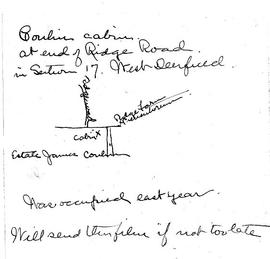 Conlin's cabin.
at end of Ridge Road.
in Section 17. West Deerfield.
Ridge Road
cabin
Estate James Conlin
Was occupied last year.
Will send this film if not too late